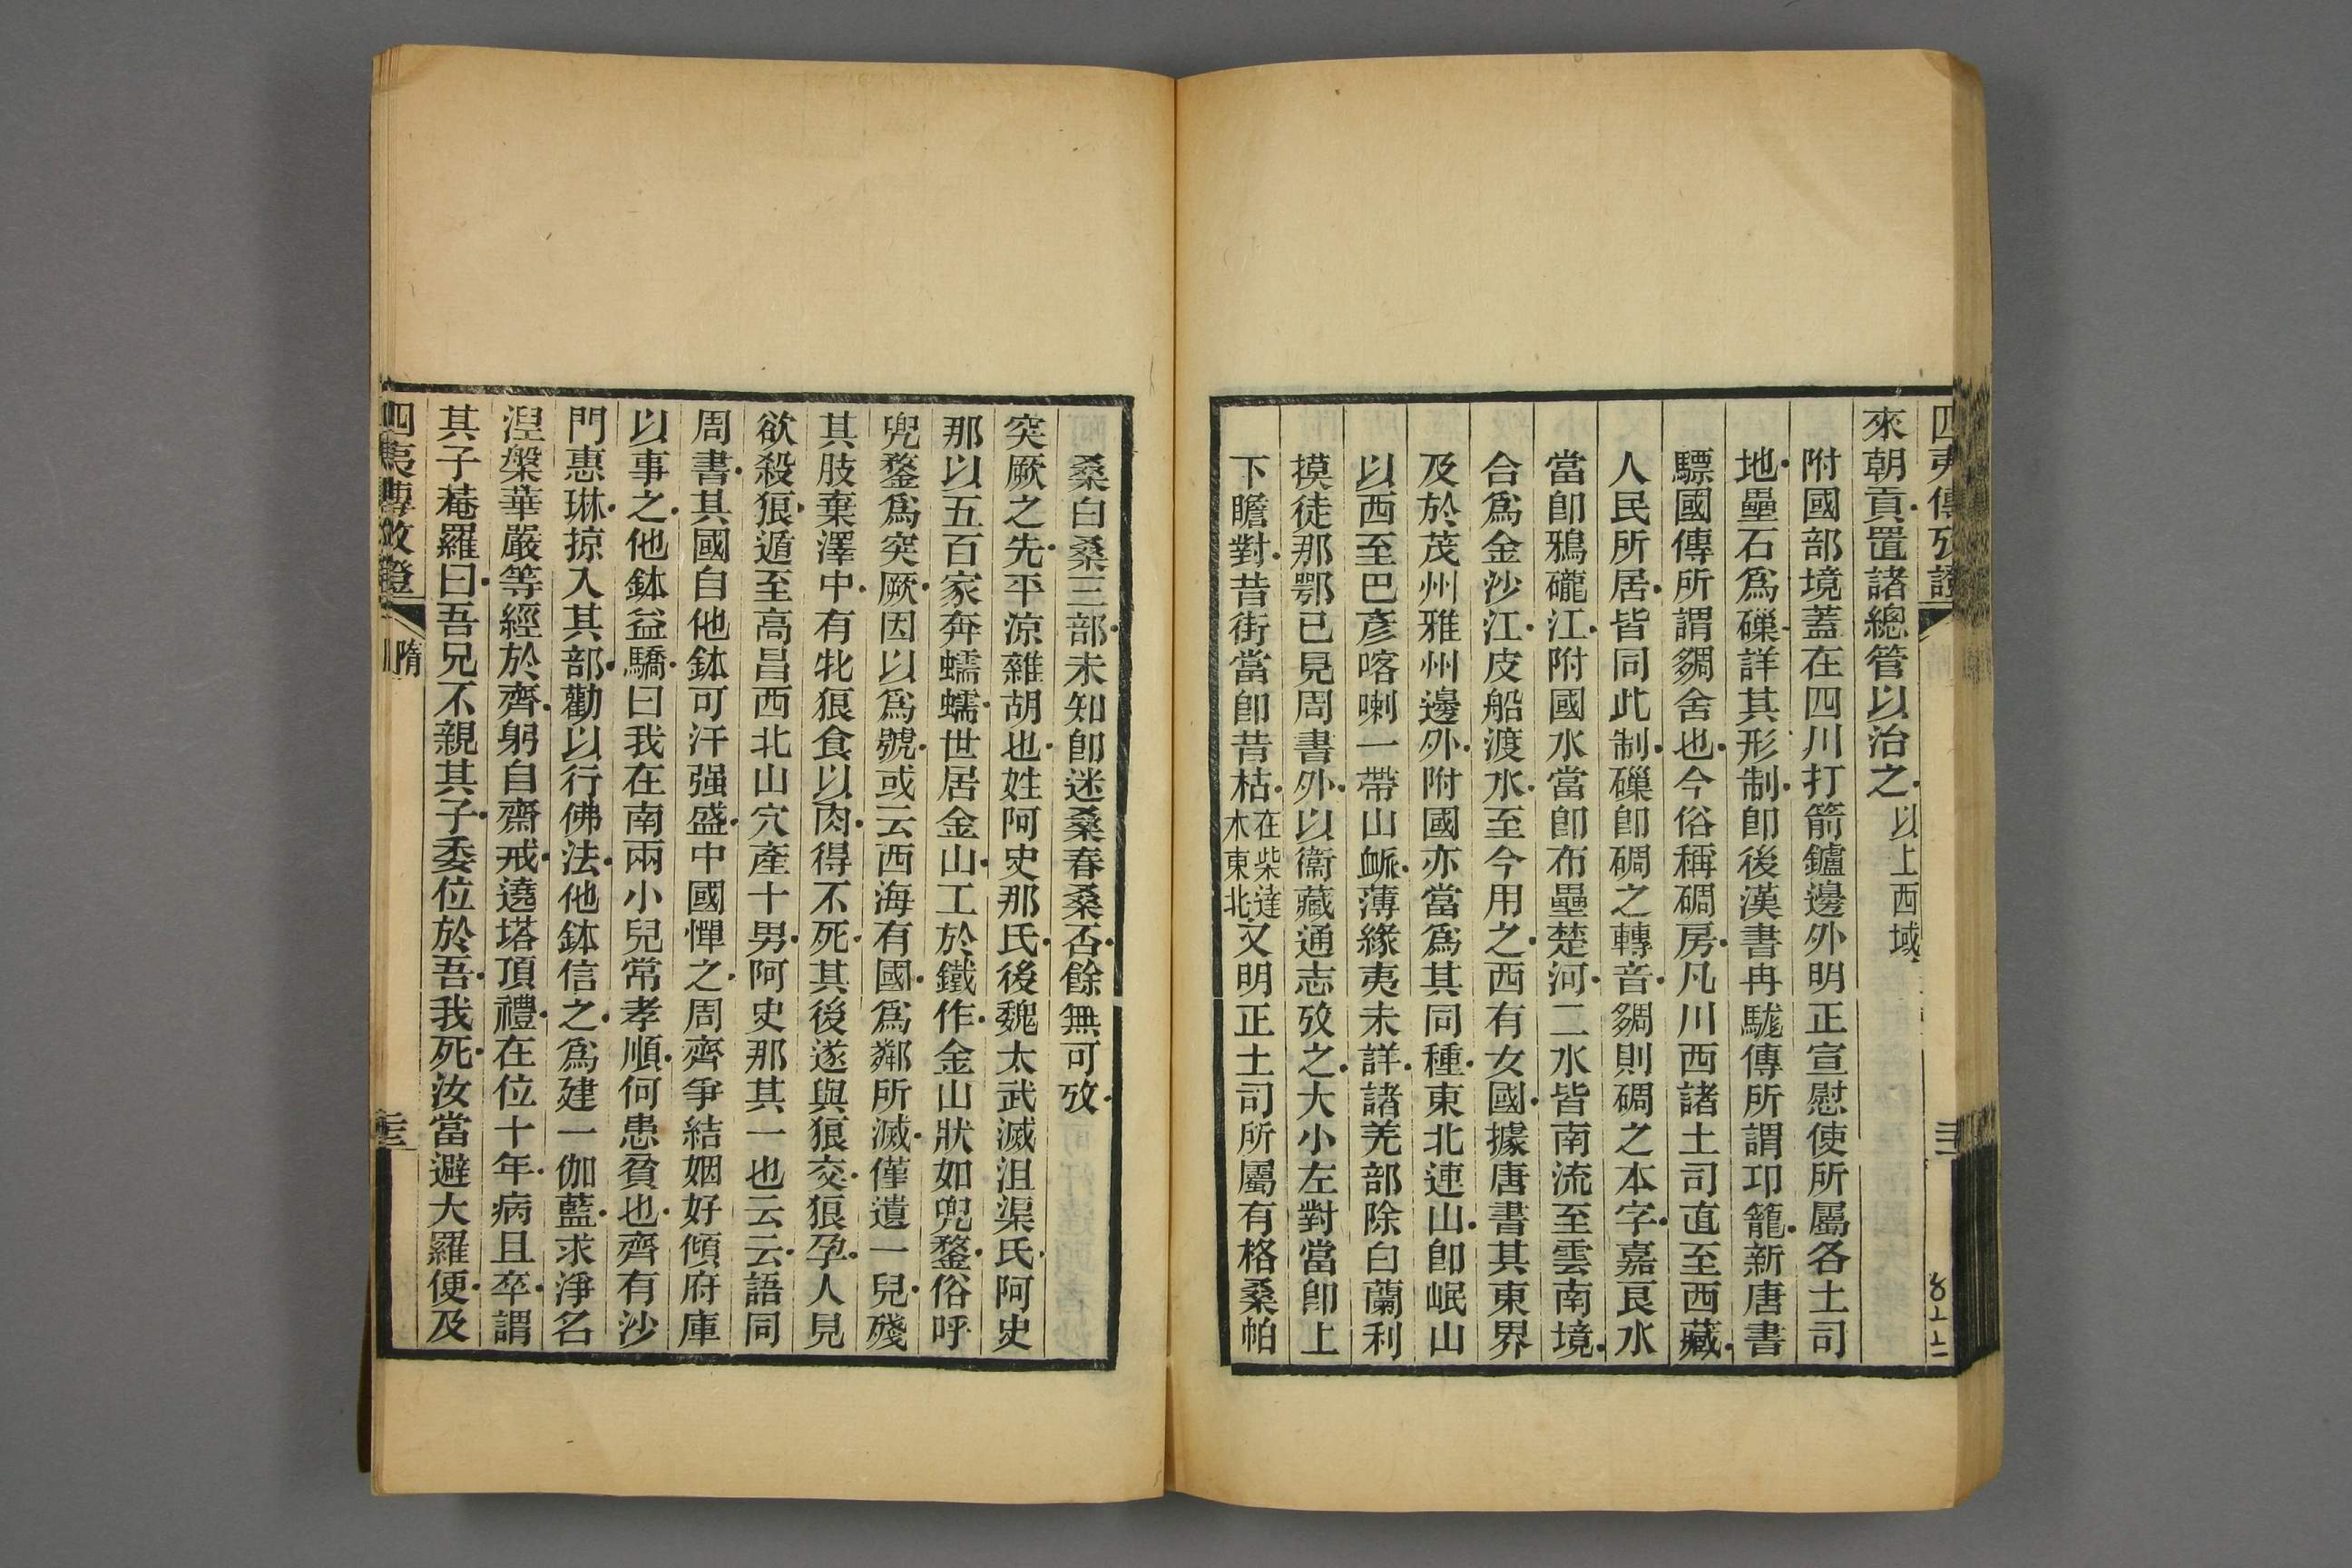 四夷傳攷證
來朝貢置諸總管以治之以上西域
附國部境蓋在四川打箭鑪邊外明正宣慰使所屬各土司
地壘石爲磼詳其形制卽後漢書冉駹傳所謂邛籠新唐書
驃國傳所謂鵰舍也今俗稱碉房凡川西諸土司直至西藏
人民所居皆同此制磼卽碉之轉音鵰則碉之本字嘉良水
當卽鴉礲江附國水當卽布壘楚河二水皆南流至雲南境
合爲金沙江皮船渡水至今用之西有女國據唐書其東界
及於茂州雅州邊外附國亦當爲其同種東北連山卽岷山
以西至巴彥喀喇一帶山脈薄緣夷未詳諸羌部除白蘭利
摸徒那鄂已見周書外以衞藏通志攷之大小左對當卽上
下瞻對昔街當卽昔枯在柴達木東北又明正土司所屬有格桑帕
桑白桑三部未知卽迷桑春桑否餘無可攷
突厥之先平涼雜胡也姓阿史那氏後魏太武滅沮渠氏阿史
那以五百家奔蠕蠕世居金山工於鐵作金山狀如兜鍪俗呼
兜鍪爲突厥因以爲號或云西海有國爲鄰所滅僅遺一兒殘
其肢棄澤中有牝狼食以肉得不死其後遂與狼交狼孕人見
欲殺狼遁至高昌西北山穴產十男阿史那其一也云云語同
周書其國自他鉢可汗强盛中國憚之周齊爭結姻好傾府庫
以事之他鉢益驕曰我在南兩小兒常孝順何患貧也齊有沙
門惠琳掠入其部勸以行佛法他鉢信之爲建一伽藍求淨名
涅槃華嚴等經於齊躬自齋戒遶塔頂禮在位十年病且卒謂
其子菴羅曰吾兄不親其子委位於吾我死汝當避大羅便及
四夷傳攷證 隋